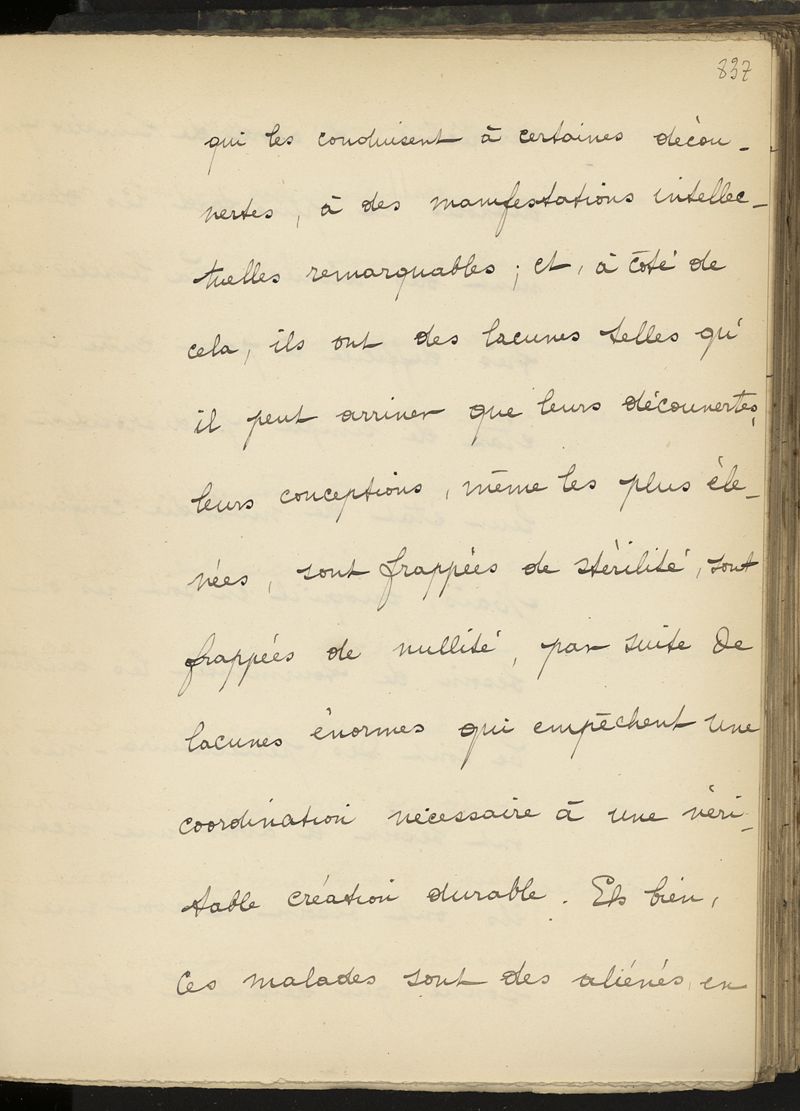 837
qui les conduisent à certaines décou-
vertes, à des manifestations intellec-
tuelles remarquables ; et, à côté de
cela, ils ont des lacunes telles qu'
il peut arriver que leurs découvertes,
leurs conceptions, même les plus éle-
vées, sont frappées de stérilité, sont
frappées de nullité, par suite de
lacunes énormes qui empêchent une
coordination nécessaire à une véri-
table création durable. Eh bien,
ces malades sont des aliénés, en